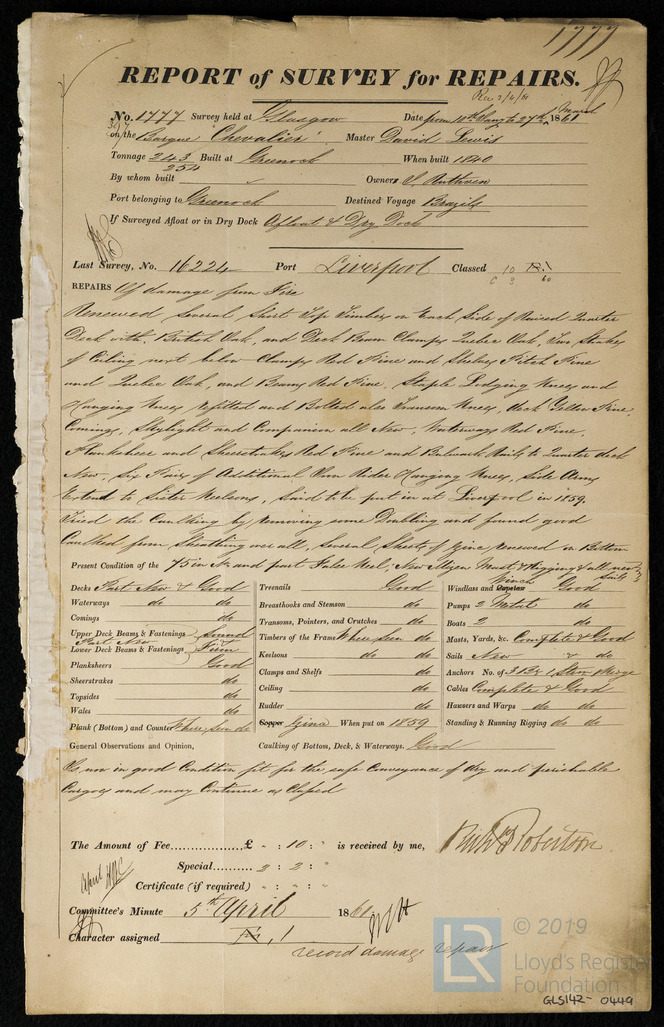 1777
REPORT of SURVEY for REPAIRS.
Rec 2/4/61
No. 1777 Survey held at Glasgow Date from 18th Jany to 27th March 1861
on the Barque 'Chevalier' Master David Lewis
Tonnage 243 Built at Greenock When built 1840
254
By whom built Owners J. Ruthven
Port belonging to Greenock Destined Voyage Brazils
If Surveyed Afloat or in Dry Dock Afloat & Dry Dock
Last Survey, No. 16224 Port Liverpool Classed 10
REPAIRS Of damage from Fire
Renewed Several Short Top Timbers on Each Side of Raised Quarter
Deck with British Oak, and Deck Beam Clamps Quebec Oak, Two Strakes
of Ceiling next below Clamps Red Pine and Shelves Pitch Pine
and Quebec Oak, and Beams Red Pine. Staple Lodging Knees and
Hanging Knees refitted and Bolted also Transom Knees, deck Yellow Pine,
Comings, Skylight and Companion all New, Waterways Red Pine,
Planksheer and Sheerstrakes Red Pine and Bulwark Rails to Quarter deck
New, Six Pairs of Additional Iron Rider Hanging Knees, Side Arms
Extend to Sister Keelsons, Said to be put in at Liverpool in 1859.
Tried the Caulking by removing some Doubling and found good
Caulked from Sheathing over all, Several Sheets of Zinc renewed on Bottom
Present Condition of the 75 in No and part False Keel, New Mizen Mast & Rigging & all new Sails
Decks Part New & Good
Waterways do do
Comings do
Upper Deck Beams & Fastenings Sound
Part New
Lower Deck Beams & Fastenings Firm
Planksheers Good
Sheerstrakes do
Topsides do
Wales do
Plank (Bottom) and Counter Where Seen do
Treenails Good
Breasthooks and Stemson do
Transoms, Pointers, and Crutches do
Timbers of the Frame Where Seen do
Keelsons do do
Clamps and Shelfs do
Ceiling do
Rudder do
Copper Zinc When put on 1859
Caulking of Bottom, Deck, & Waterways. Good
Windlass and Capstan Winch Good
Pumps 2 Metal do
Boats 2 do
Masts, Yards, &c. Complete & Good
Sails New & do
Anchors No. of 3 Br 1 Strm Kedge
Cables Complete & Good
Hawsers and Warps do do
Standing & Running Rigging do do
General Observations and Opinion,
Is now in good Condition fit for the safe Conveyance of dry and perishable
Cargoes and may Continue as Classed
The Amount of Fee £ " : 10 : " is received by me, Robertson
Special 2 : 2 : "
Certificate (if required) " : " : "
April
Committee's Minute 5th April 1861
Character assigned 1
record damage repair
© 2019
LR
Lloyd's Register
Foundation
GLS142-0449